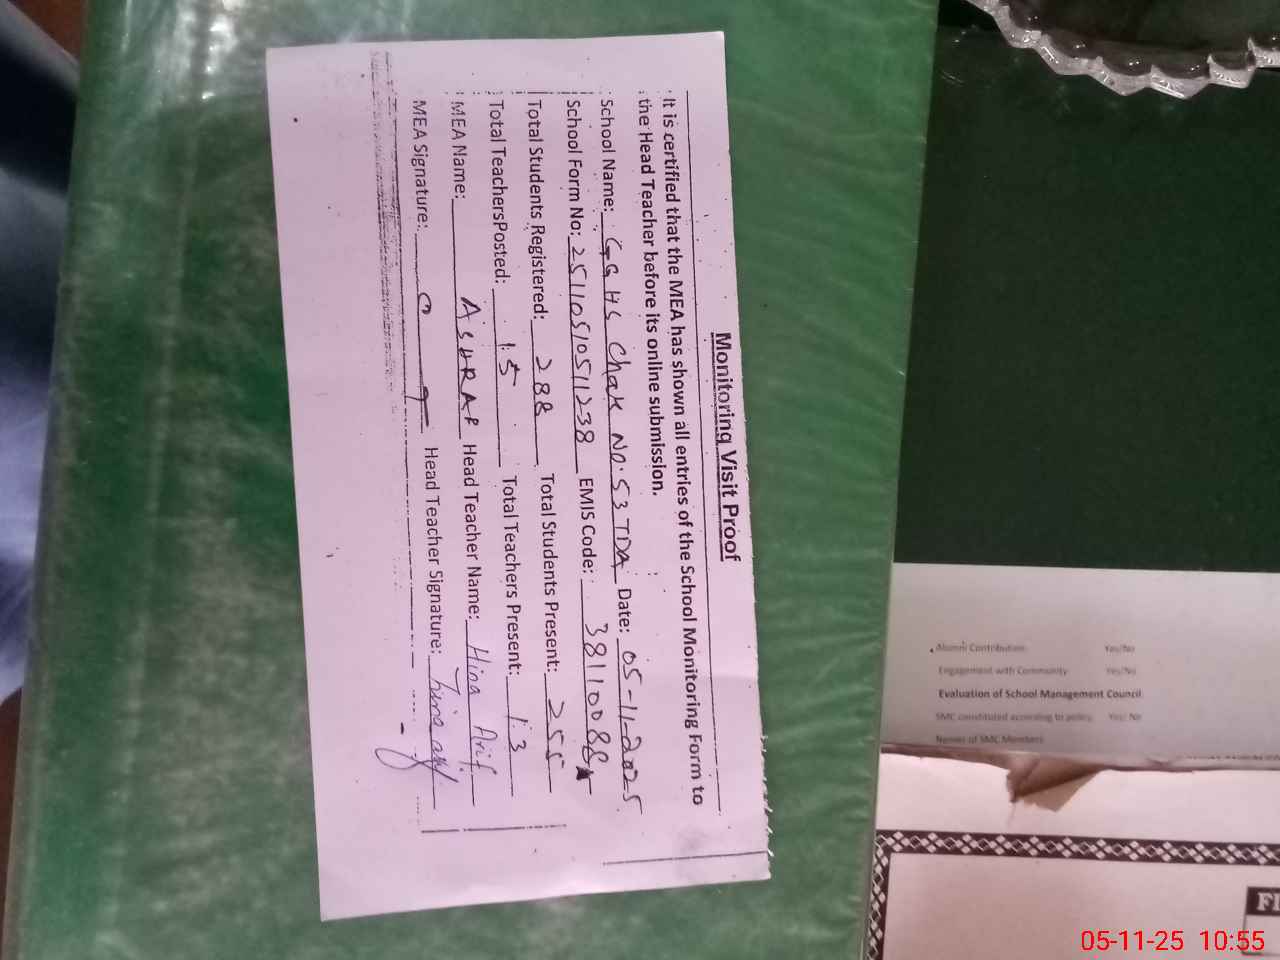 Monitoring Visit Proof
It is certified that the MEA has shown all entries of the School Monitoring Form to
the Head Teacher before its online submission.
School Name: GGHS Chak No. 53 TDA Date: 05-11-2025
School Form No: 25110510511238 EMIS Code: 38110088
Total Students Registered: 288 Total Students Present: 255
Total TeachersPosted: 15 Total Teachers Present: 13
MEA Name: ASHRAF Head Teacher Name: Hina Arif
MEA Signature: Head Teacher Signature:
Alumni Contribution Yes/No
Engagement with Community Yes/No
Evaluation of School Management Council
SMC constituted according to policy Yes/ No
Names of SMC Members
05-11-25 10:55